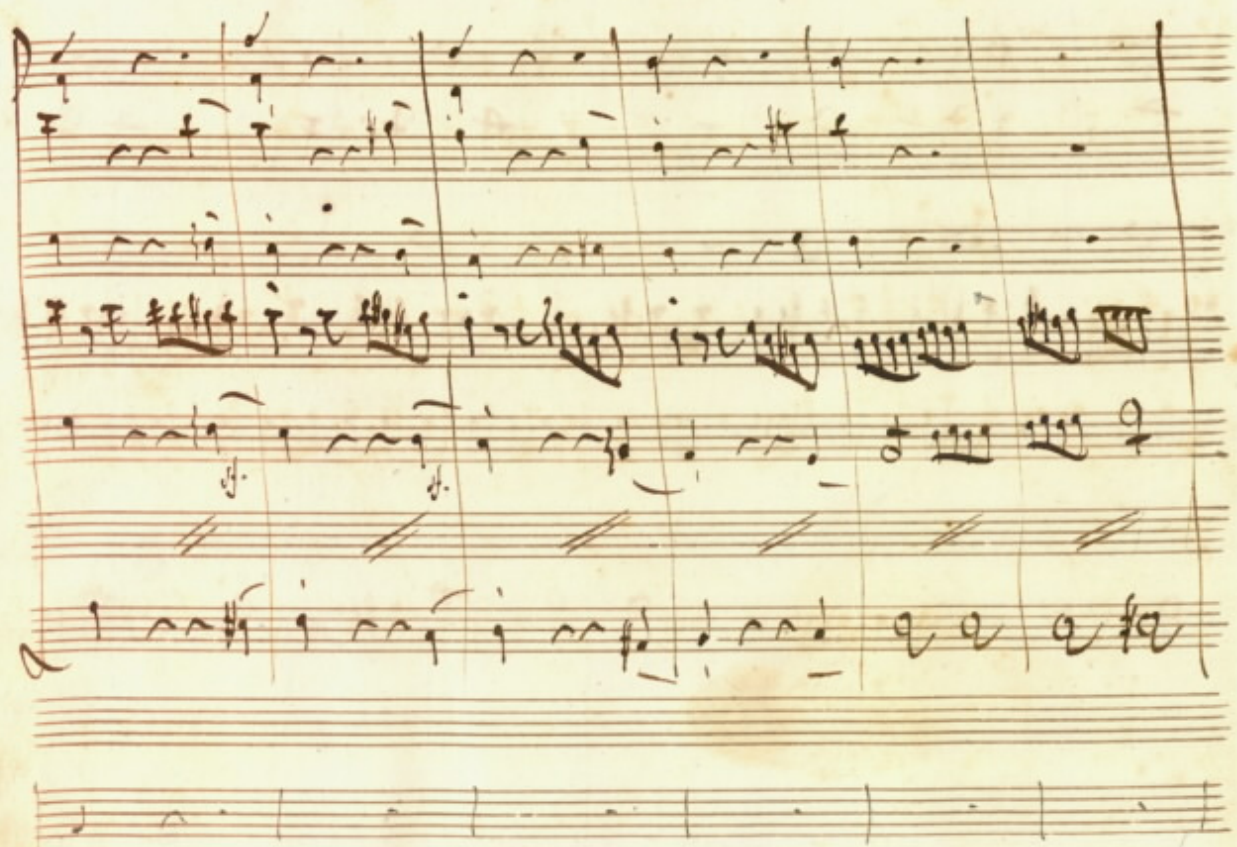 sf. sf.